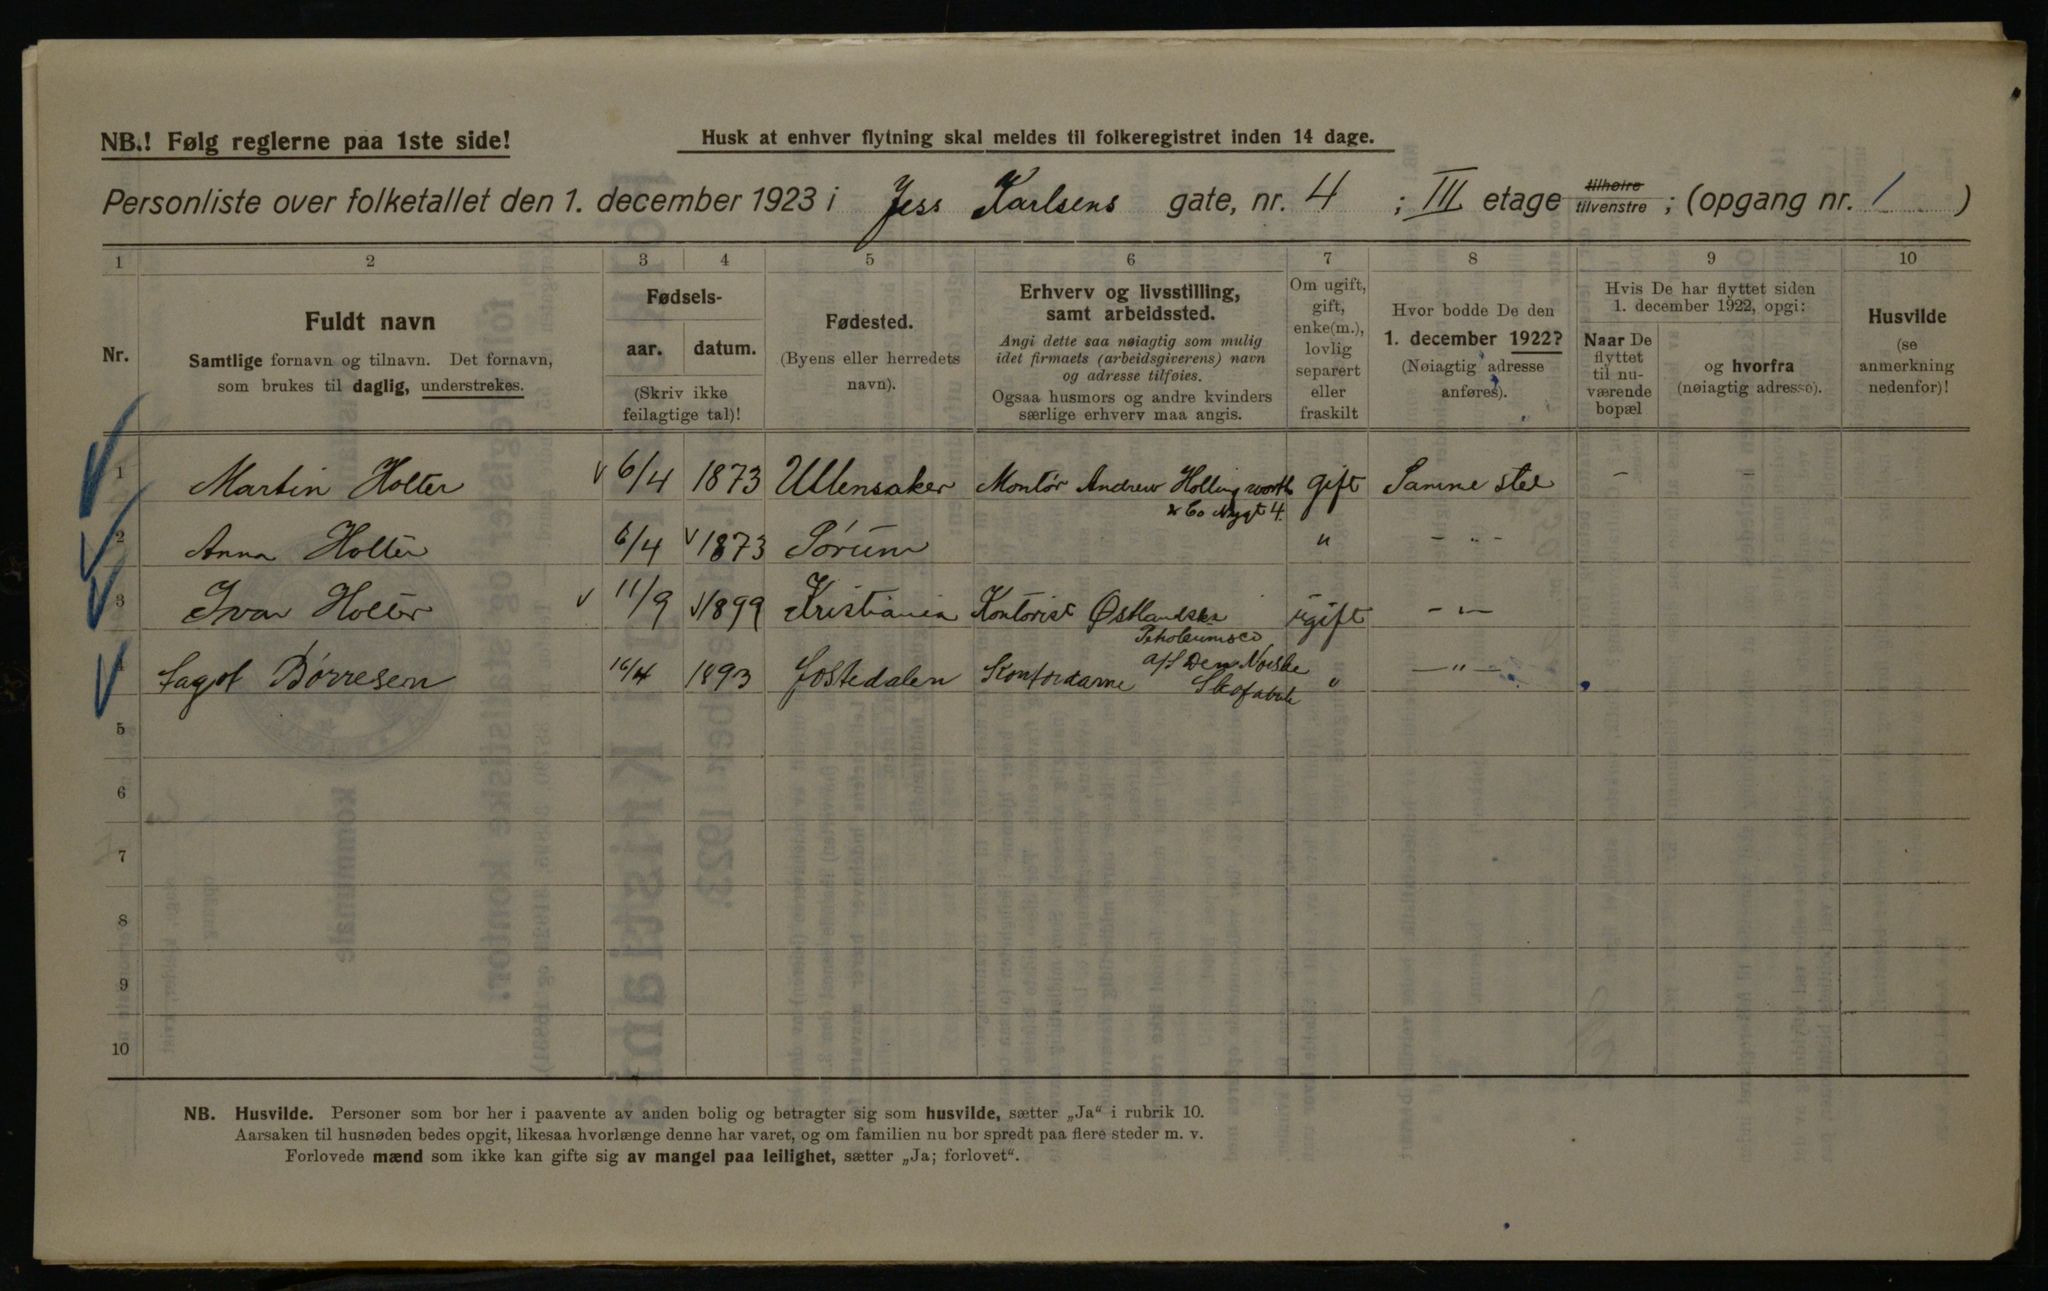 NB.! Følg reglerne paa 1ste side!
Husk at enhver flytning skal meldes til folkeregistret inden 14 dage.
Personliste over folketallet den 1. december 1923 i Jess Karlsens gate, nr. 4 ; III etage tilhøire tilvenstre ; (opgang nr. 1 )
1 2 3 4 5 6 7 8 9 10
Nr.
Fuldt navn
Samtlige fornavn og tilnavn. Det fornavn,
som brukes til daglig, understrekes.
Fødsels-
aar. datum.
(Skriv ikke
feilagtige tal)!
Fødested.
(Byens eller herredets
navn).
Erhverv og livsstilling,
samt arbeidssted.
Angi dette saa nøiagtig som mulig
idet firmaets (arbeidsgiverens) navn
og adresse tilføies.
Ogsaa husmors og andre kvinders
særlige erhverv maa angis.
Om ugift,
gift,
enke(m.),
lovlig
separert
eller
fraskilt
Hvor bodde De den
1. december 1922?
(Nøiagtig adresse
anføres).
Hvis De har flyttet siden
1. december 1922, opgi:
Naar De
flyttet
til nu-
værende
bopæl
og hvorfra
(nøiagtig adresse).
Husvilde
(se
anmerkning
nedenfor)!
1 Martin Holter 6/4 1873 Ullensaker Montør Andrew Hollingworth gift Samme sted - -
& Co Nygt 4.
2 Anna Holter 6/4 1873 Sørum " - " -
3 Ivar Holter 11/9 1899 Kristiania Kontorist Østlandske ugift - " -
Petroleumsco
4 Børresen 16/4 1893 Jostedalen Kontordame A/S Den Norske " - " -
Skofabrik
5
6
7
8
9
10
NB. Husvilde. Personer som bor her i paavente av anden bolig og betragter sig som husvilde, sætter „Ja“ i rubrik 10.
Aarsaken til husnøden bedes opgit, likesaa hvorlænge denne har varet, og om familien nu bor spredt paa flere steder m. v.
Forlovede mænd som ikke kan gifte sig av mangel paa leilighet, sætter „Ja; forlovet“.